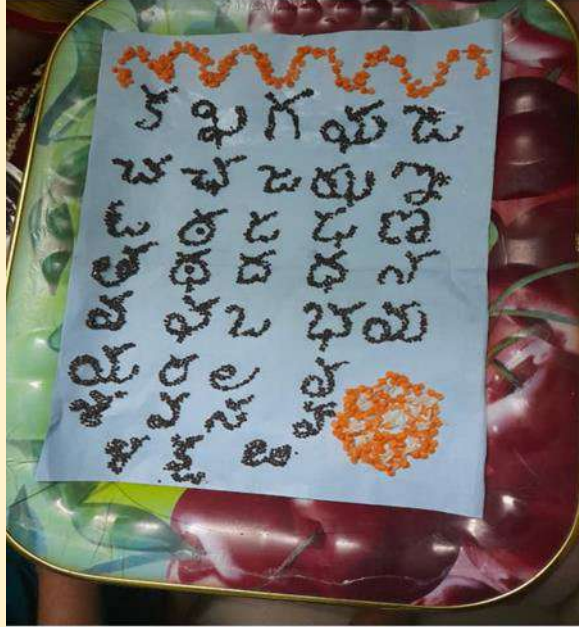 క ఖ గ ఘ ఙ
చ ఛ జ ఝ ఞ
ట ఠ డ ఢ ణ
త థ ద ధ న
ప ఫ బ భ మ
య ర ల వ
శ ష స హ
ళ క్ష ఱ